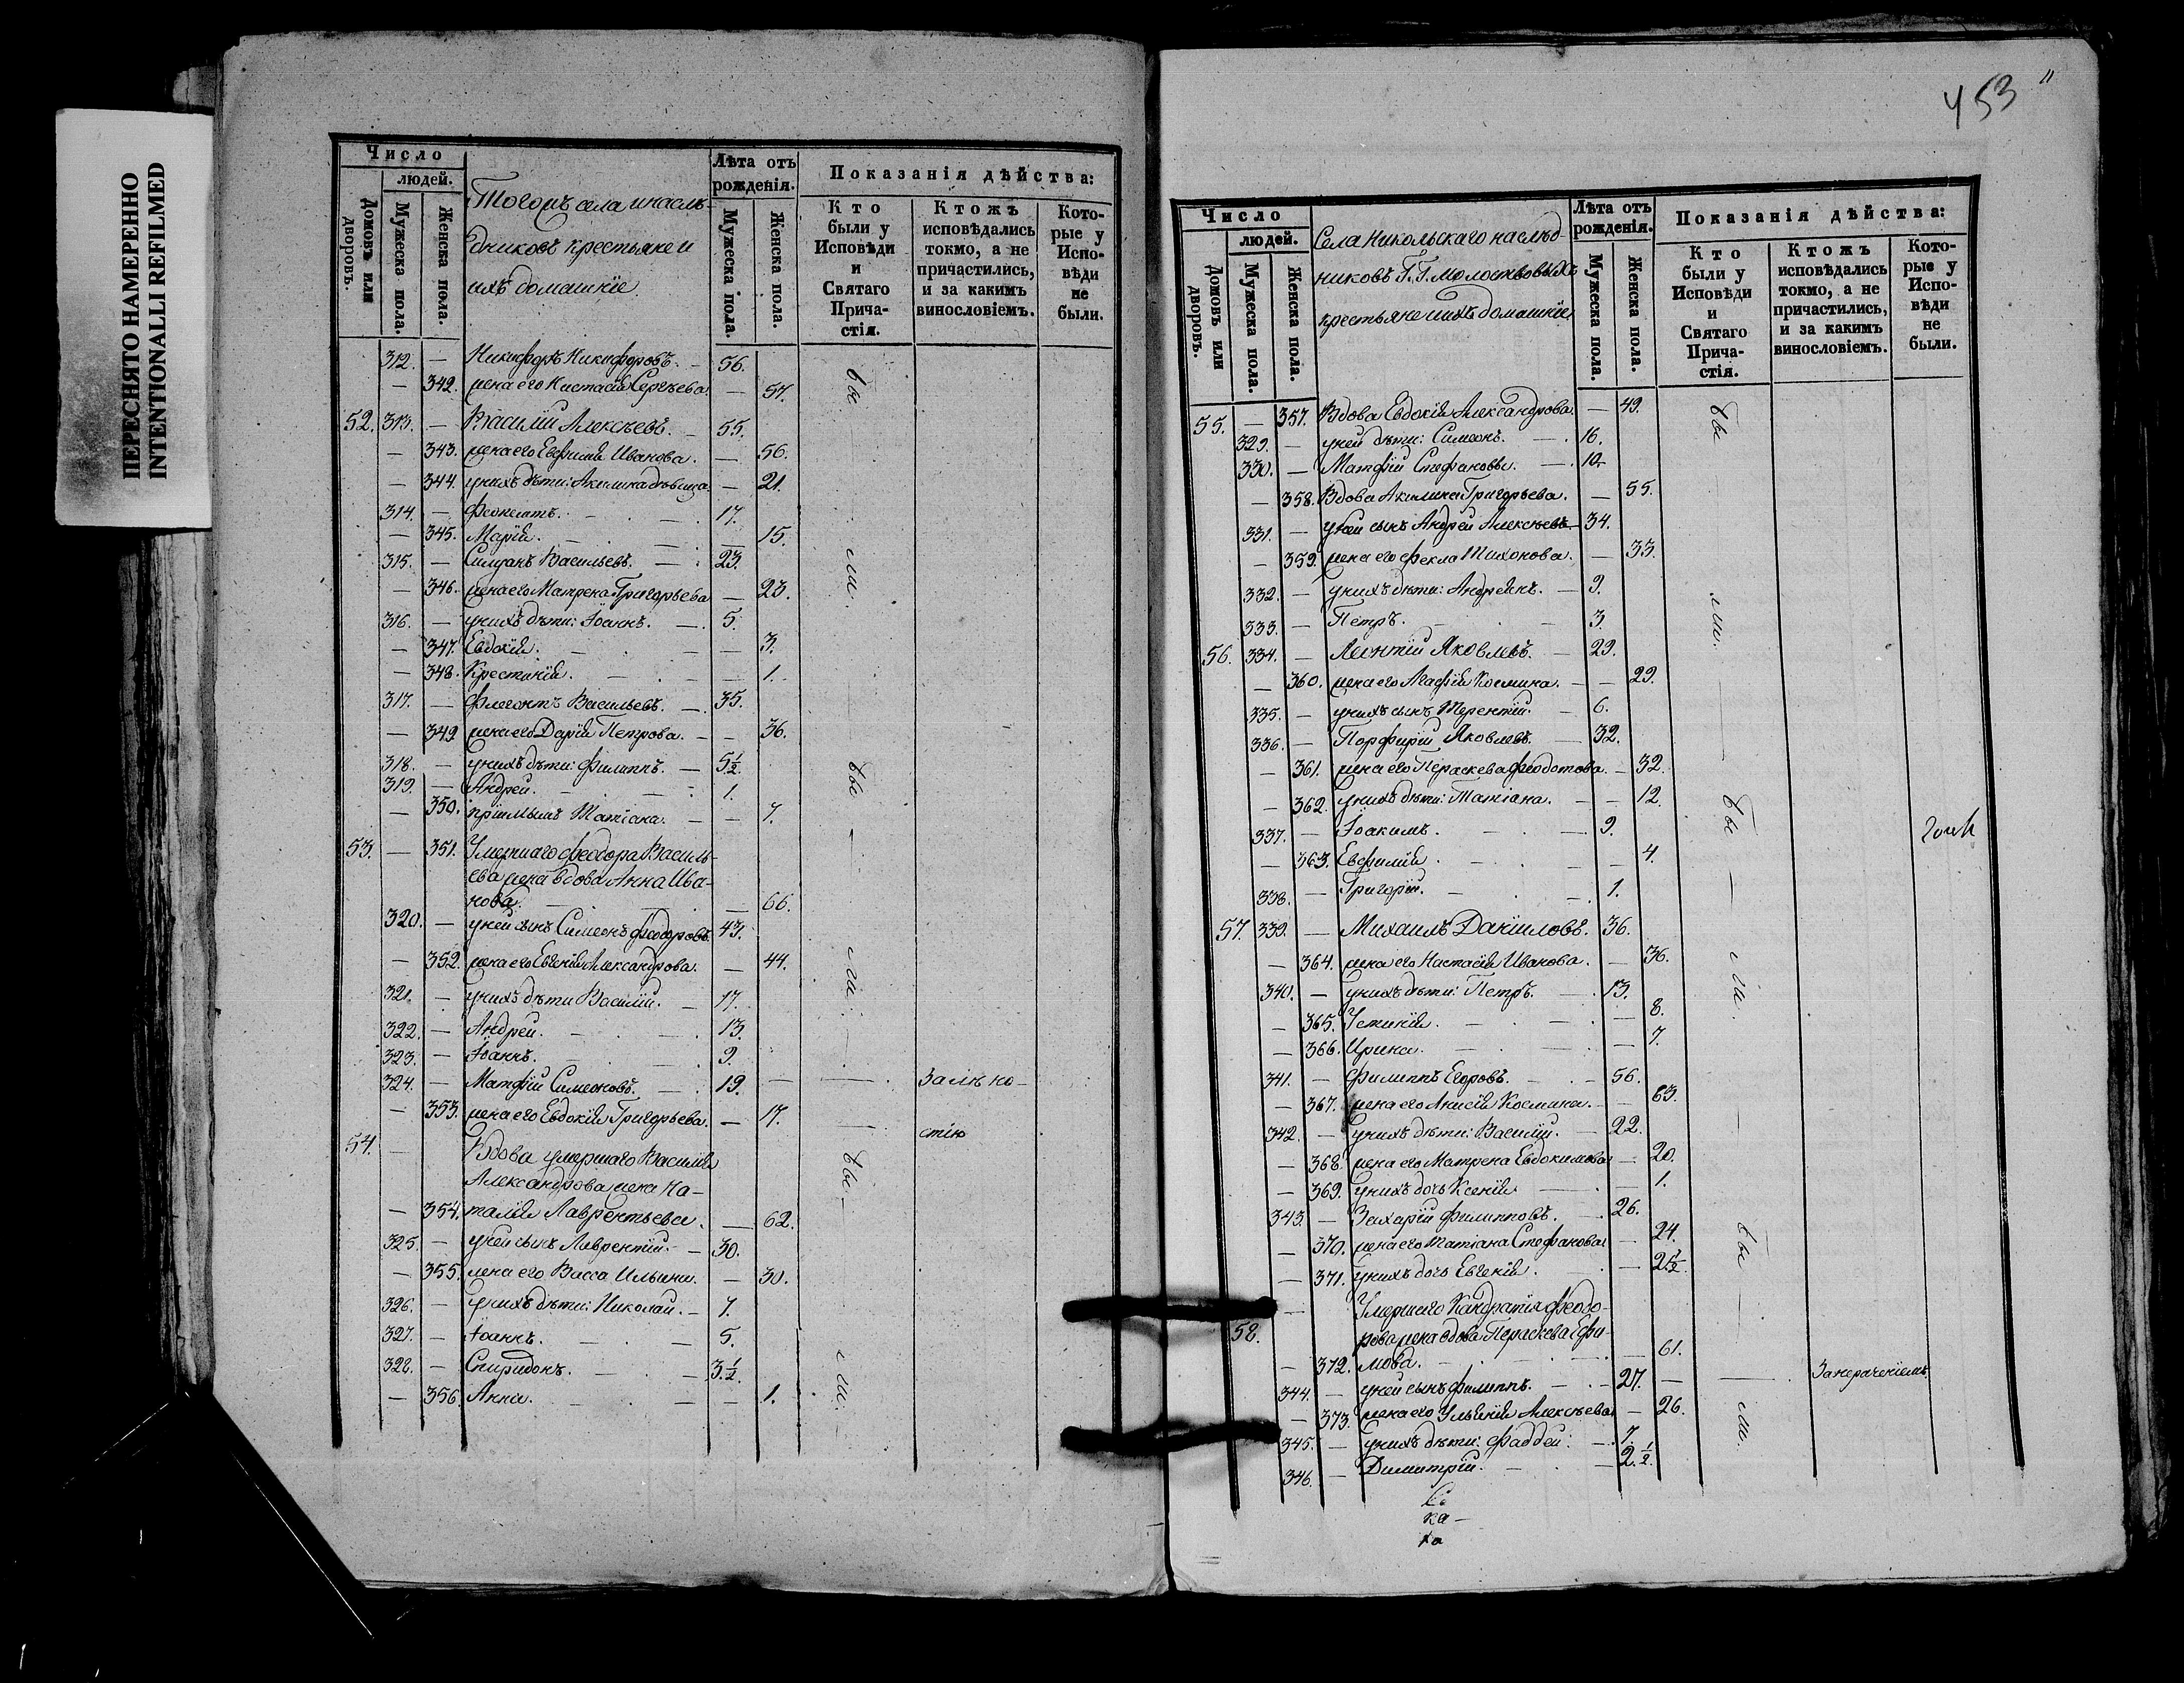 ПЕРЕСНЯТО НАМЕРЕННО
INTENTIONALLI REFILMED
Число
людей.
Домовъ или дворовъ.
Мужеска пола.
Женска пола.
Тогожъ села и наслѣ-
дниковъ крестьяне и
ихъ домашніе
Лѣта отъ рожденія.
Мужеска пола.
Женска пола.
Показанія дѣйства:
Кто были у Исповѣди и Святаго Прича-стія.
Ктожъ исповѣдались токмо, а не причастились, и за какимъ винословіемъ.
Кото-рые у Испо-вѣди не были.
312. — Никифоръ Никифоровъ. — 56.
— 342. жена его Настасія Сергѣева. — 57.
52. 313. — Василій Алексѣевъ. — 55.
— 343. жена его Евфимія Иванова. — 56.
— 344. у нихъ дѣти: Акилина дѣвица. — 21.
314. — Феоктистъ. — 17.
— 345. Марія. — 15.
315. — Силуанъ Васильевъ. — 23.
— 346. жена его Матрена Григорьева — 23.
316. — у нихъ дѣти: Іоаннъ. — 5.
— 347. Евдокія. — 3.
— 348. Крестинія. — 1.
317. — Флегонтъ Васильевъ. — 35.
— 349 жена его Дарія Петрова. — 36.
318. — у нихъ дѣти: Филиппъ. — 5½.
319. — Андрей. — 1.
— 350. пріимышъ Татіана. — 7.
53. — 351. Умершаго Феодора Василь-
ева жена вдова Анна Ива-
нова. — 66.
320. — у ней сынъ Симеонъ Феодоровъ. 43.
— 352. жена его Евгенія Александрова. — 44.
321. — у нихъ дѣти Василій. — 17.
322. — Андрей. — 13.
323. — Іоаннъ. — 9.
324. — Матфій Симеоновъ. — 19. — За лѣно-
— 353. жена его Евдокія Григорьева. — 17. — стію
54. — Вдова умершаго Василія
Александрова жена На-
— 354. талія Лаврентьева. — 62.
325. — у ней сынъ Лаврентій. — 30.
— 355. жена его Васса Ильина. — 30.
326. — у нихъ дѣти: Николай. — 7.
327. — Іоаннъ. — 5.
328. — Спиридонъ. — 3½.
— 356. Анна. — 1.
бы — ли.
бы — ли.
бы — ли.
453
Число
людей.
Домовъ или дворовъ.
Мужеска пола.
Женска пола.
Села Никольскаго наслѣд-
никовъ Г.Г. Молоствовыхъ
крестьяне и ихъ домашніе
Лѣта отъ рожденія.
Мужеска пола.
Женска пола.
Показанія дѣйства:
Кто были у Исповѣди и Святаго Прича-стія.
Ктожъ исповѣдались токмо, а не причастились, и за какимъ винословіемъ.
Кото-рые у Испо-вѣди не были.
55. — 357. Вдова Евдокія Александрова. — 49.
329. — у ней дѣти: Симеонъ. — 16.
330. — Матфій Стефановы. — 10.
— 358. Вдова Акилина Григорьева. — 55.
331. — у ней сынъ Андрей Алексѣевъ — 34.
— 359. жена его Фекла Тихонова. — 33.
332. — у нихъ дѣти: Андреянъ. — 9.
333. — Петръ. — 3.
56. 334. — Леонтій Яковлевъ. — 29.
— 360. жена его Агафія Космина. — 29.
335. — у нихъ сынъ Терентій. — 6.
336. — Порфирій Яковлевъ. — 32.
— 361. жена его Пераскева Феодотова. — 32.
— 362. у нихъ дѣти: Татіана. — 12.
337. — Іоакимъ. — 9.
— 363. Евфимія. — 4.
338. — Григорій. — 1.
57. 339. — Михаилъ Даниловъ. 36.
— 364. жена его Настасія Иванова. — 36.
340. — у нихъ дѣти: Петръ. — 13.
— 365. Устинія. — 8.
— 366. Ирина. — 7.
341. — Филиппъ Егоровъ. — 56.
— 367. жена его Анисія Космина. — 63.
342. — у нихъ дѣти: Василій. — 22.
— 368. жена его Матрена Евдокимова — 20.
— 369. у нихъ дочь Ксенія — 1.
343. — Захарій Филипповъ. — 26.
— 370. жена его Татіана Стефанова — 24.
— 371. у нихъ дочь Евгенія. — 2½.
58. — Умершаго Кандратія Феодо-
рова жена вдова Пераскева Ефи-
— 372. мова. — 61.
344. — у ней сынъ Филиппъ. — 27. — За нераченіемъ.
— 373. жена его Ульянія Алексѣева — 26.
345. — у нихъ дѣти: Фаддей: — 7.
346. — Димитрій. — 2.½
бы — ли.
бы — ли.
бы — ли.